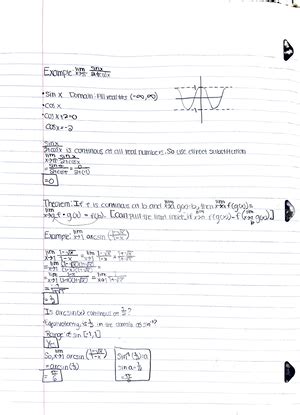 Example: lim x→π sinx/2+cosx
• sin x Domain: All real nos (-∞,∞)
• cos x
• cos x+2=0
cos x=-2
sinx/2+cosx is continuous on all real numbers. So use direct substitution
lim x→π sinx/2+cosx
= sinπ/2+cosπ = 0/2+(-1)
=0
Theorem: If f is continuous at b and lim x→a g(x)=b, then lim x→a f(g(x))=
lim x→a f∘g(x) = f(b). [Can pull the limit inside, if lim x→a f(g(x)) = f(lim x→a g(x))]
Example: lim x→1 arcsin(1-√x/1-x)
lim x→1 1-√x/1-x = lim x→1 1-√x/1-x · 1+√x/1+√x
= lim x→1 (1-√x)(1+√x)/(1-x)(1+√x)
= lim x→1 1-x/(1-x)(1+√x) = lim x→1 1/1+√x
= 1/1+√1
= 1/2
Is arcsin(x) continuous at 1/2?
is 1/2 in the domain of sin⁻¹?
Range of sin [-1,1]
So, lim x→1 arcsin(1-√x/1-x)
= arcsin(1/2)
= π/6
sin⁻¹(1/2)=a
sin a=1/2
= π/6